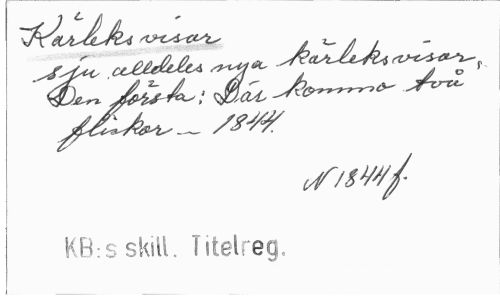 Kärleksvisor
sju alldeles nya kärleksvisor.
Den första: Där kommo två
fliskor – 1844.
N 1844 f.
KB:s skill. Titelreg.